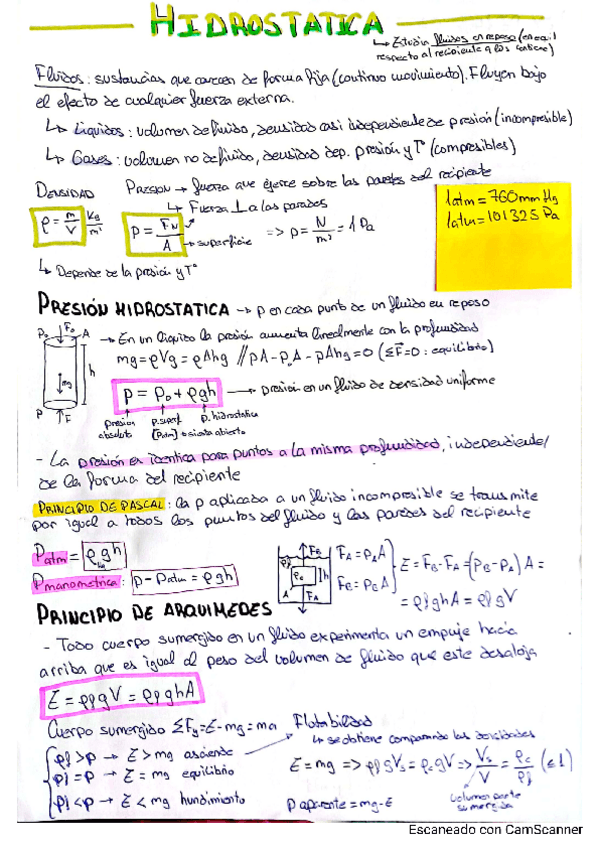 HIDROSTATICA
↳ Estudia fluidos en reposo (en eq.
respecto al recipiente q los contiene)
Fluidos: sustancias que carecen de forma fija (continuo movimiento). Fluyen bajo
el efecto de cualquier fuerza externa.
↳ Líquidos: volumen definido, densidad casi independiente de presión (incompresible)
↳ Gases: volumen no definido, densidad dep. presión y Tª (compresibles)
DENSIDAD
ρ = m/V kg/m³
↳ Depende de la presión y Tª
PRESION → fuerza que ejerce sobre las paredes del recipiente
↳ Fuerza ⊥ a las paredes
P = F_N/A → superficie => p = N/m² = 1 Pa
1 atm = 760 mm Hg
1 atm = 101325 Pa
PRESIÓN HIDROSTATICA → p en cada punto de un fluido en reposo
P₀ F₀ A
h
mg
P F
→ En un líquido la presión aumenta linealmente con la profundidad
mg = ρVg = ρAhg // pA - p₀A - ρAhg = 0 (ΣF = 0 : equilibrio)
p = p₀ + ρgh → presión en un fluido de densidad uniforme
presión absoluta
p. superf. [Patm] si está abierto
p. hidrostatica
- La presión es identica para puntos a la misma profundidad, independiente/
de la forma del recipiente
PRINCIPIO DE PASCAL: la p aplicada a un fluido incompresible se transmite
por igual a todos los puntos del fluido y las paredes del recipiente
Patm = ρgh
Pmanometrica: p - Patm = ρgh
F_B
ρf ρc h
A F_A
F_A = p_A A
F_B = p_B A
E = F_B - F_A = (P_B - P_A) A =
= ρf ghA = ρf gV
PRINCIPIO DE ARQUIMEDES
- Todo cuerpo sumergido en un fluido experimenta un empuje hacia
arriba que es igual al peso del volumen de fluido que este desaloja
E = ρf gV = ρf ghA
Cuerpo sumergido ΣFy = E - mg = ma
ρf > ρ → E > mg asciende
ρf = ρ → E = mg equilibrio
ρf < ρ → E < mg hundimiento
Flotabilidad
↳ se obtiene comparando las densidades
E = mg => ρf gVs = ρc gV => Vs/V = ρc/ρf (≤ 1)
volumen parte
sumergida
P aparente = mg - E
Escaneado con CamScanner